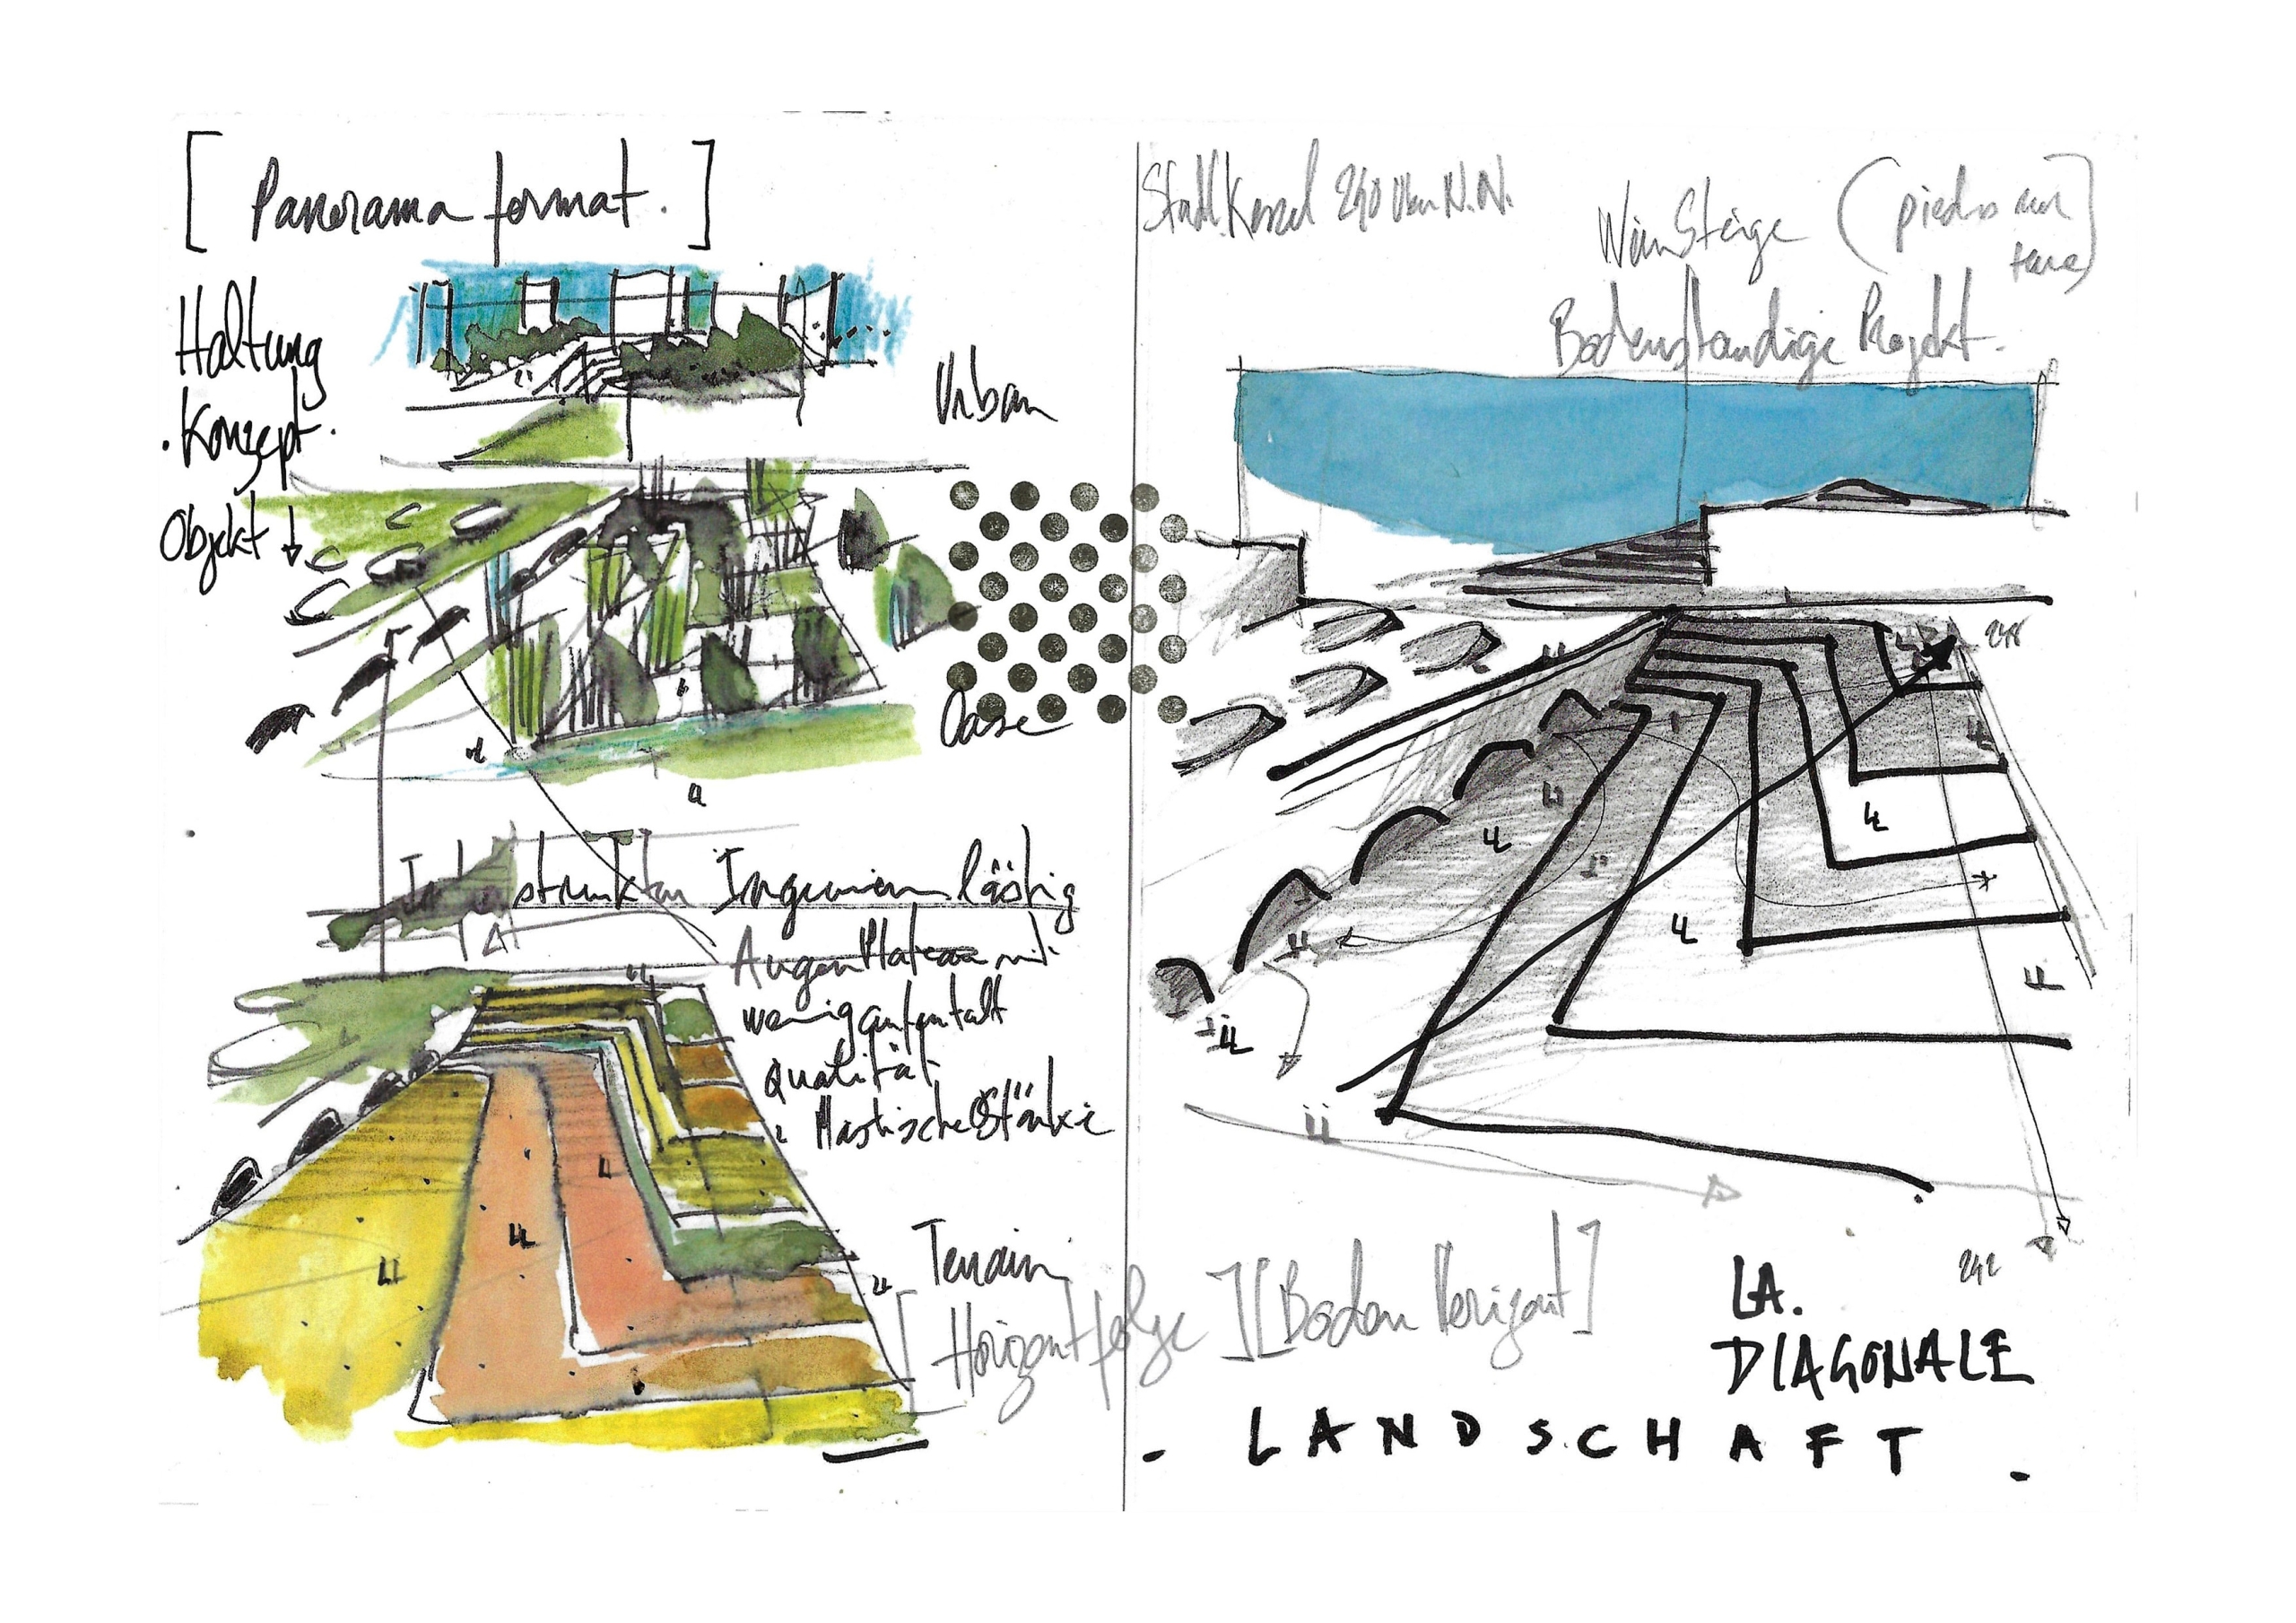 [ Panorama format. ]
Haltung
. Konzept.
Objekt
Urban
Oase
Ingenieur lästig
Augen Plateau mit
wenig aufentalt
Qualität
Plastische Stärke
Terrain
[Horizont folge] [Boden Horizont]
Stadt Kessel 240 über N.N.
WeinSteige (pieds sur
terre)
Bodenständige Projekt.
248
242
LA.
DIAGONALE
. LANDSCHAFT .